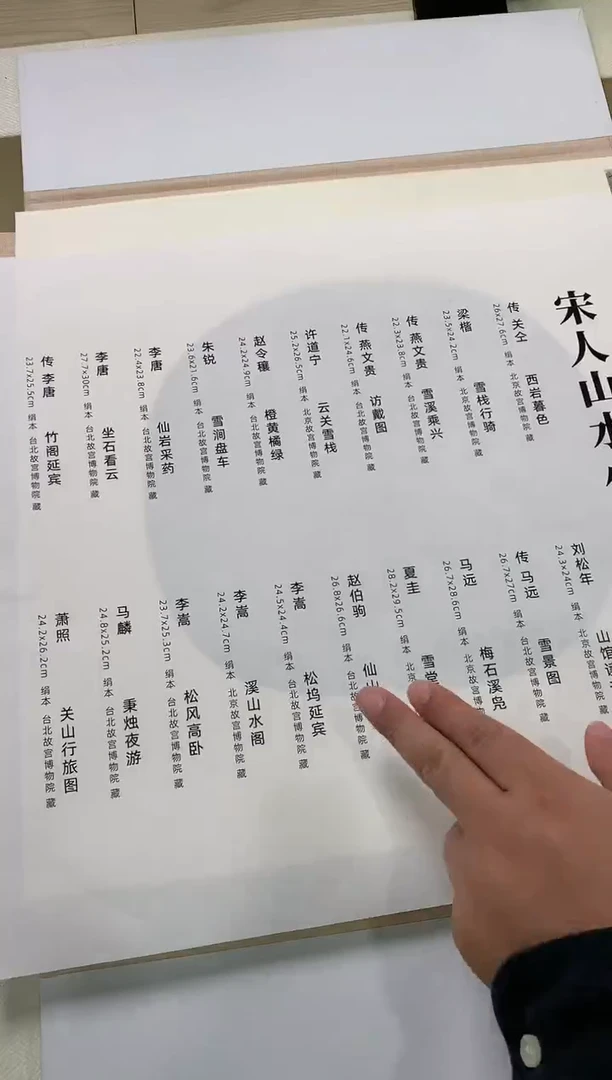 宋人山水
传 关仝 西岩暮色
26x27.6cm 绢本 北京故宫博物院 藏
梁楷 雪栈行骑
23.5x24.2cm 绢本 北京故宫博物院 藏
传 燕文贵 雪溪乘兴
22.3x23.8cm 绢本 台北故宫博物院 藏
传 燕文贵 访戴图
22.1x24.6cm 绢本 台北故宫博物院 藏
许道宁 云关雪栈
25.2x26.5cm 绢本 北京故宫博物院 藏
赵令穰 橙黄橘绿
24.2x24.9cm 绢本 台北故宫博物院 藏
朱锐 雪涧盘车
23.6x21.6cm 绢本 台北故宫博物院 藏
李唐 仙岩采药
22.4x23.8cm 绢本 台北故宫博物院 藏
李唐 坐石看云
27.7x30cm 绢本 台北故宫博物院 藏
传 李唐 竹阁延宾
23.7x25.5cm 绢本 台北故宫博物院 藏
刘松年 山馆读
24.3x24cm 绢本
传 马远 雪景图
26.7x27cm 绢本 台北故宫博物院 藏
马远 梅石溪凫
26.7x28.6cm 绢本 北京故宫博物院 藏
夏圭 雪堂
28.2x29.5cm 绢本 北京
赵伯驹 仙山
26.8x26.6cm 绢本 台北故宫博物院 藏
李嵩 松坞延宾
24.5x24.4cm 绢本 台北故宫博物院 藏
李嵩 溪山水阁
24.2x24.7cm 绢本 北京故宫博物院 藏
李嵩 松风高卧
23.7x25.3cm 绢本 台北故宫博物院 藏
马麟 秉烛夜游
24.8x25.2cm 绢本 台北故宫博物院 藏
萧照 关山行旅图
24.2x26.2cm 绢本 台北故宫博物院 藏